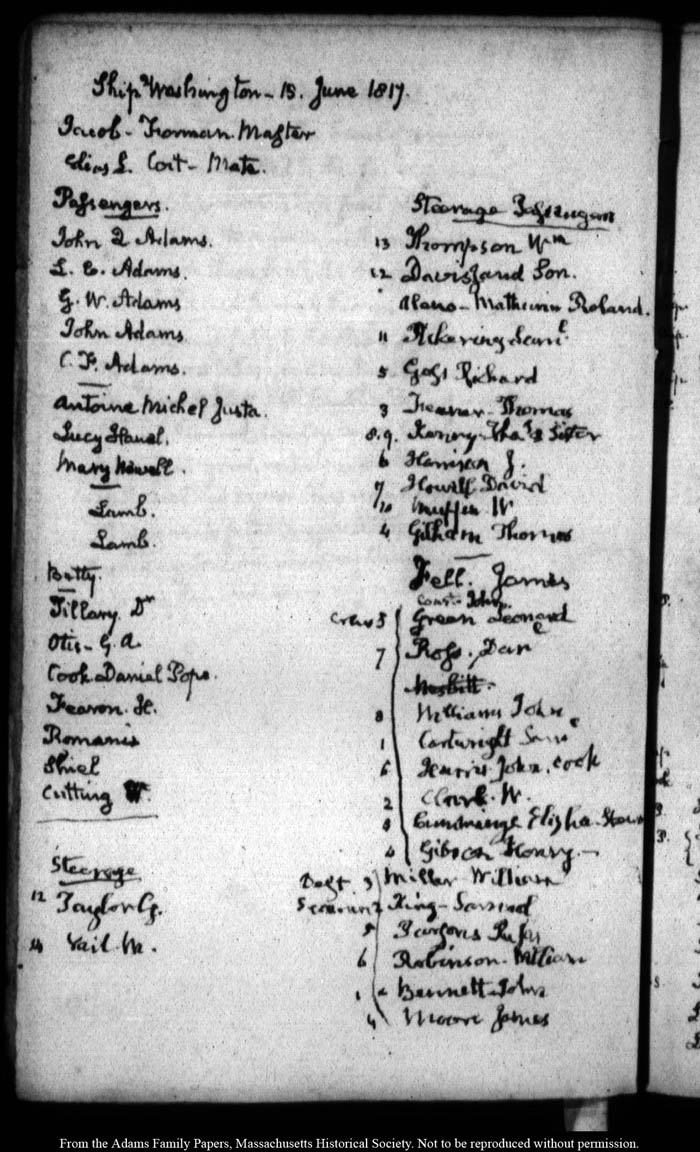 Ship Washington - 15. June 1817.
Jacob - Forman. Master
Elias L. Coit - Mate.
Passengers.
John Q Adams.
L. C. Adams.
G. W. Adams
John Adams
C. F. Adams.
Antoine Michel Justa.
Lucy
Mary Newell.
Lamb.
Lamb.
Betty.
Tillary. Dr
Otis - G. A.
Cook Daniel Pope.
Fearon. H.
Romanis
Shiel
Cutting W.
Steerage
12 Taylor G.
14 Vail M.
Steerage Passengers
13 Thompson Wm
12 Davis and Son.
Mathurin Roland.
11 Pickering Saml
5 Goss Richard
3 Thomas
8. 9. Kenny Thas & Sister
6 Harrison J.
7 Howill David
10 W
4 Gilham Thomas
Fell. James
John
Crew 3 Green Leonard
7 Ross. Dan
Nesbitt.
8 Williams John
1 Cartwright Saml
6 Harris John. Cook
2 Clark. W.
8 Cummings Elisha
4 Gibson Henry. -
3 Miller William
2 King - Samuel
Parsons Rufus
6 Robinson William
1 Bennett John
4 Moore James
From the Adams Family Papers, Massachusetts Historical Society. Not to be reproduced without permission.